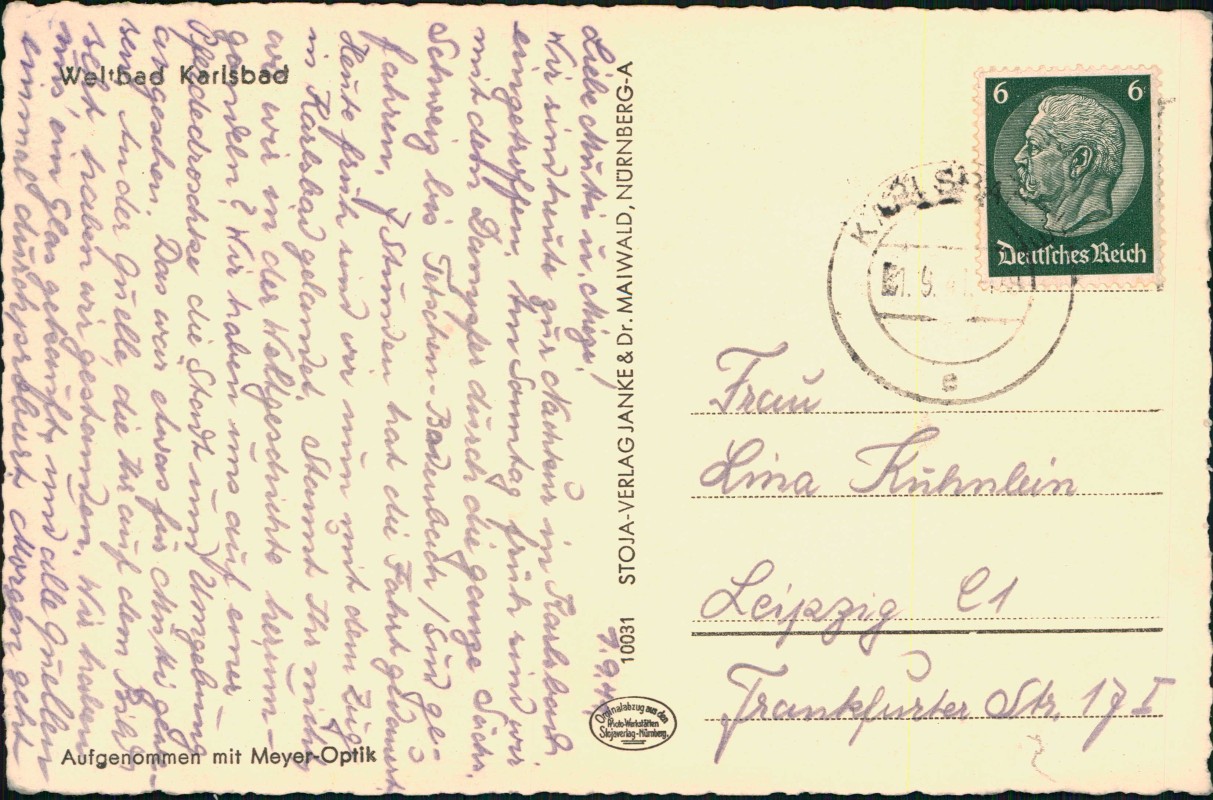 Weltbad Karlsbad
7.9.
Liebe Mutti u.
Wir sind heute zur Nachkur in Karlsbad
eingetroffen. Am Sonntag früh sind wir
mit dem Dampfer durch die ganze Sächs.
Schweiz bis Tetschen-Bodenbach / Sud. ge-
fahren, 7 Stunden hat die Fahrt gedauert.
Heute früh sind wir nun mit dem Zug
in Karlsbad gelandet. Staunt Ihr nicht
wo wir in der Weltgeschichte herum
gondeln? Wir haben uns auf einer
Pferdedroschke die Stadt und Umgebung
angesehen. Das war etwas für gewe-
sen. An der Quelle, die Ihr auf dem Bild
seht haben wir gestanden. Wir haben
uns ein Glas gekauft und alle Quellen
einmal durchprobiert. Morgen geht
Aufgenommen mit Meyer-Optik
10031 STOJA-VERLAG JANKE & Dr. MAIWALD, NÜRNBERG-A
Originalabzug aus den
Photo-Werkstätten
Stojaverlag-Nürnberg.
6 6
Deutsches Reich
KARLSBAD
9.
e
Frau
Lina Kühnlein
Leipzig C1
Frankfurter Str. 17 I